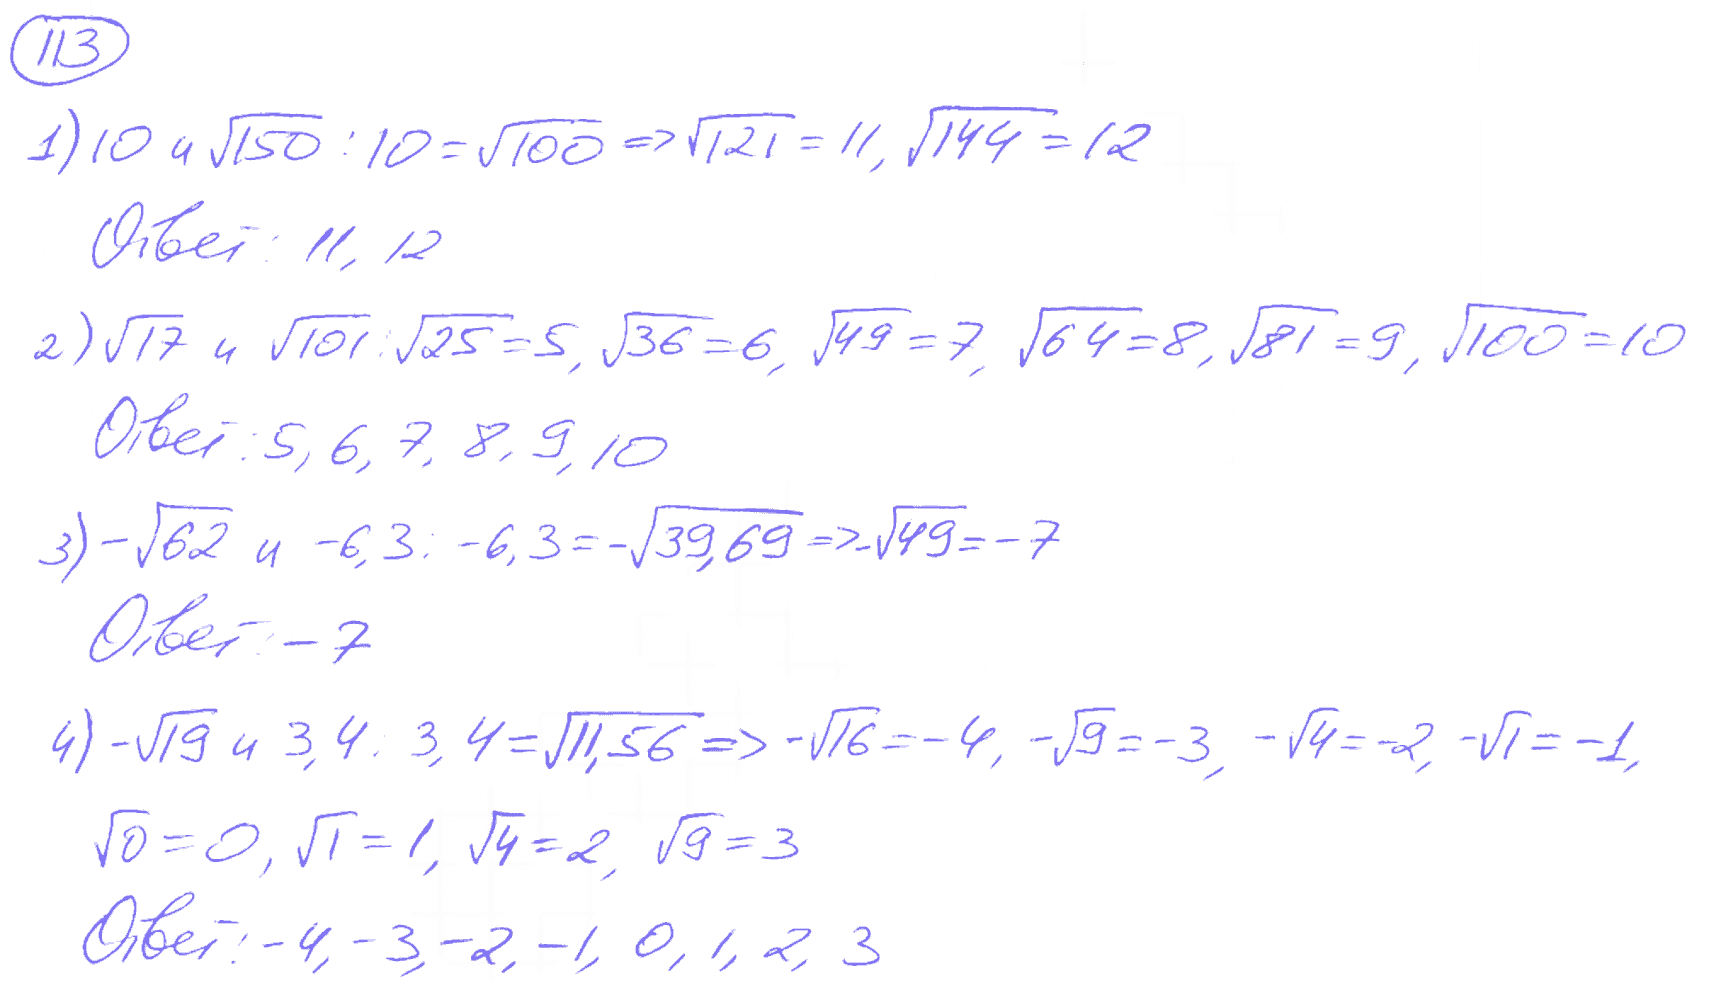 113
1) 10 и √150 : 10 = √100 => √121 = 11, √144 = 12
Ответ: 11, 12
2) √17 и √101 : √25 = 5, √36 = 6, √49 = 7, √64 = 8, √81 = 9, √100 = 10
Ответ: 5, 6, 7, 8, 9, 10
3) -√62 и -6,3 : -6,3 = -√39,69 => -√49 = -7
Ответ: -7
4) -√19 и 3,4 : 3,4 = √11,56 => -√16 = -4, -√9 = -3, -√4 = -2, -√1 = -1,
√0 = 0, √1 = 1, √4 = 2, √9 = 3
Ответ: -4, -3, -2, -1, 0, 1, 2, 3